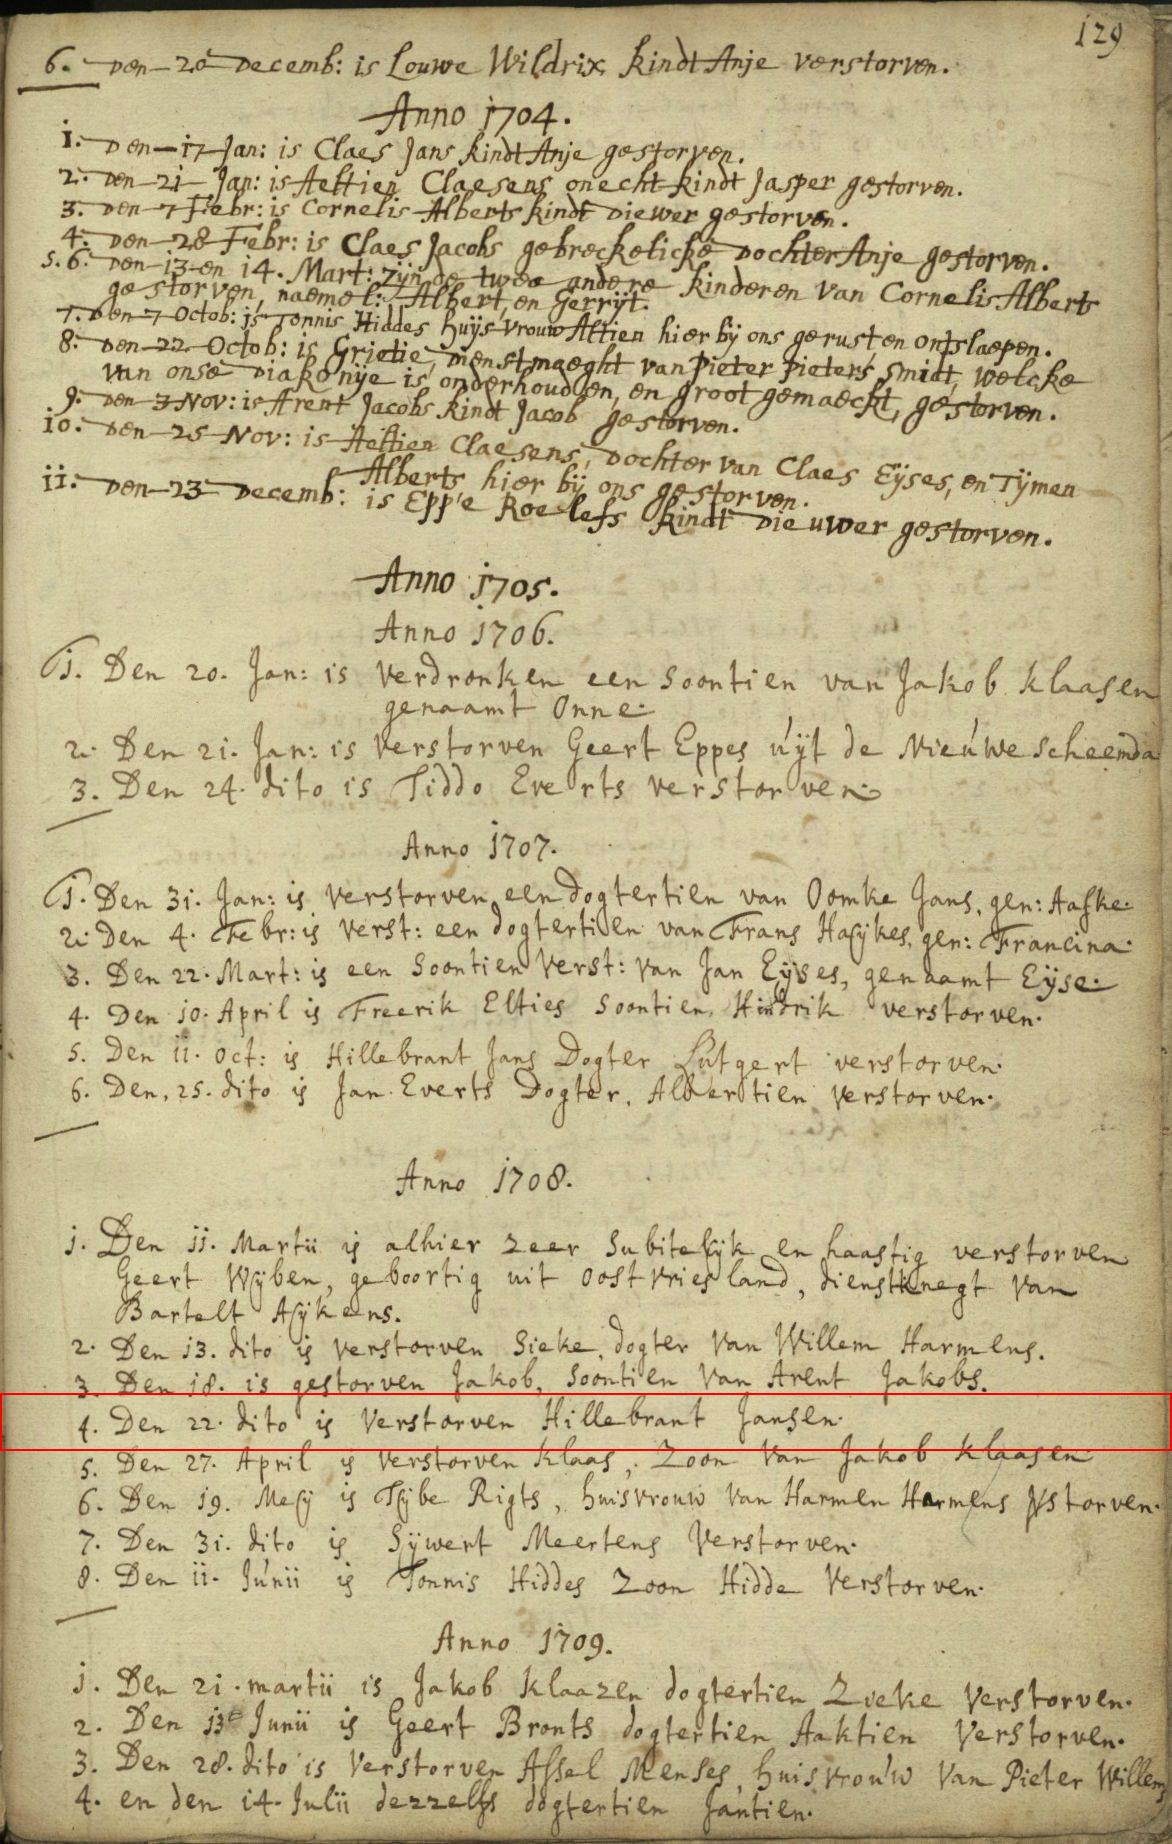 129
6. Den 20 Decemb: is Louwe Wildrix kindt Anje verstorven.
Anno 1704.
1. Den 17 Jan: is Claes Jans kindt Anje gestorven.
2. Den 21 Jan: is Aeltien Claesens onecht kindt Jasper gestorven.
3. Den 7 Febr: is Cornelis Alberts kindt Diewer gestorven.
4. Den 28 Febr: is Claes Jacobs gebreckelicke Dochter Anje gestorven.
5. 6. Den 13 en 14. Mart: zijn de twee andere kinderen van Cornelis Alberts
gestorven, naemel: Albert, en Gerrijt.
7. Den 7 Octob: is Tonnis Hiddes huijsvrouw Altien hier bij ons gerust en ontslaepen.
8. Den 22 Octob: is Grietie, Dienstmaeght van Pieter Pieters smidt, welcke
van onse Diakonije is onderhouden, en groot gemaeckt, gestorven.
9. Den 3 Nov: is Arent Jacobs kindt Jacob gestorven.
10. Den 25 Nov: is Aeltien Claesens, Dochter van Claes Eijses, en Tijmen
Alberts hier bij ons gestorven.
11. Den 23 Decemb: is Eppe Roelefs kindt Dieuwer gestorven.
Anno 1705.
Anno 1706.
1. Den 20. Jan: is verdronken een soontien van Jakob Klaasen
genaamt Onne.
2. Den 21. Jan: is verstorven Geert Eppes uijt de Nieuwe Scheemda
3. Den 24. dito is Tiddo Everts verstorven.
Anno 1707.
1. Den 31. Jan: is verstorven een dogtertien van Oomke Jans, gen: Aafke.
2. Den 4. Febr: is verst: een dogtertien van Frans Haijkes, gen: Francina.
3. Den 22. Mart: is een soontien verst: van Jan Eijses, genaamt Eijse.
4. Den 10. April is Freerik Elties soontien Hindrik verstorven.
5. Den 11. Oct: is Hillebrant Jans Dogter Lutgert verstorven.
6. Den, 25. dito is Jan Everts Dogter, Albertien verstorven.
Anno 1708.
1. Den 11. Martii is alhier zeer subitelijk en haastig verstorven
Geert Wijben, geboortig uit Oostvriesland, dienstknegt van
Bartelt Aijkens.
2. Den 13. dito is verstorven Sieke, dogter van Willem Harmens.
3. Den 18. is gestorven Jakob, soontien van Arent Jakobs.
4. Den 22. dito is verstorven Hillebrant Jansen.
5. Den 27. April is verstorven Klaas, zoon van Jakob Klaasen
6. Den 19. Meij is Tijbe Rigts, huisvrouw van Harmen Harmens vstorven.
7. Den 31. dito is Sijwert Meertens verstorven.
8. Den 11. Junii is Tonnis Hiddes zoon Hidde verstorven.
Anno 1709.
1. Den 21. martii is Jakob Klaazen dogtertien Zieke verstorven.
2. Den 13e Junii is Geert Bronts dogtertien Aaktien verstorven.
3. Den 28. dito is verstorven Assel Menses, huisvrouw van Pieter Willems
4. en den 14. Julii dezzelfs dogtertien Jantien.